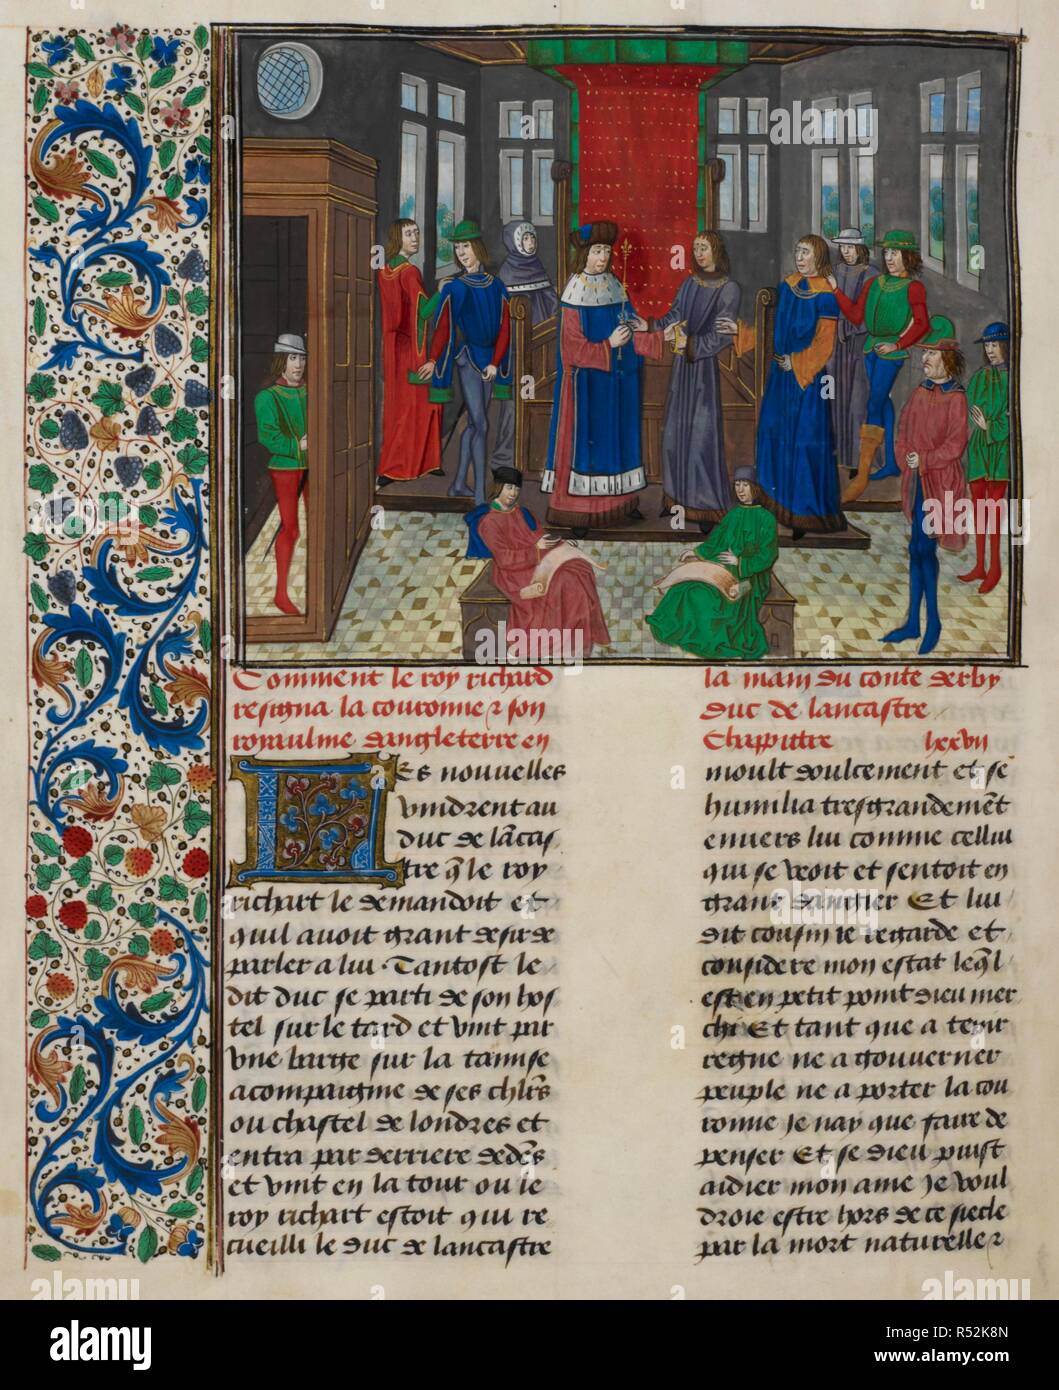 Comment le roy richard
resigna la couronne et son
royaulme dangleterre en
la main du conte derby
duc de lancastre
Chappittre lxxvii
Les nouvelles
vindrent au
duc de lancas
tre que le roy
richart le demandoit et
quil avoit grant desir de
parler a lui. Tantost le
dit duc se parti de son hos
tel sur le tard et vint par
vne barge sur la tamise
acompaigne de ses chlrs
ou chastel de londres et
entra par derriere dedens
et vint en la tour ou le
roy richart estoit qui re
cueilli le duc de lancastre
moult doulcement et se
humilia tresgrandement
envers lui comme cellui
qui se veoit et sentoit en
grant dangier Et lui
dit cousin ie regarde et
considere mon estat leql
est en petit point dieu mer
chi Et tant que a tenir
regne ne a gouverner
peuple ne a porter la cou
ronne Je nay que faire de
penser Et se dieu puist
aidier mon ame Je voul
droie estre hors de ce siecle
par la mort naturelle et
alamy
Image ID: R52K8N
www.alamy.com